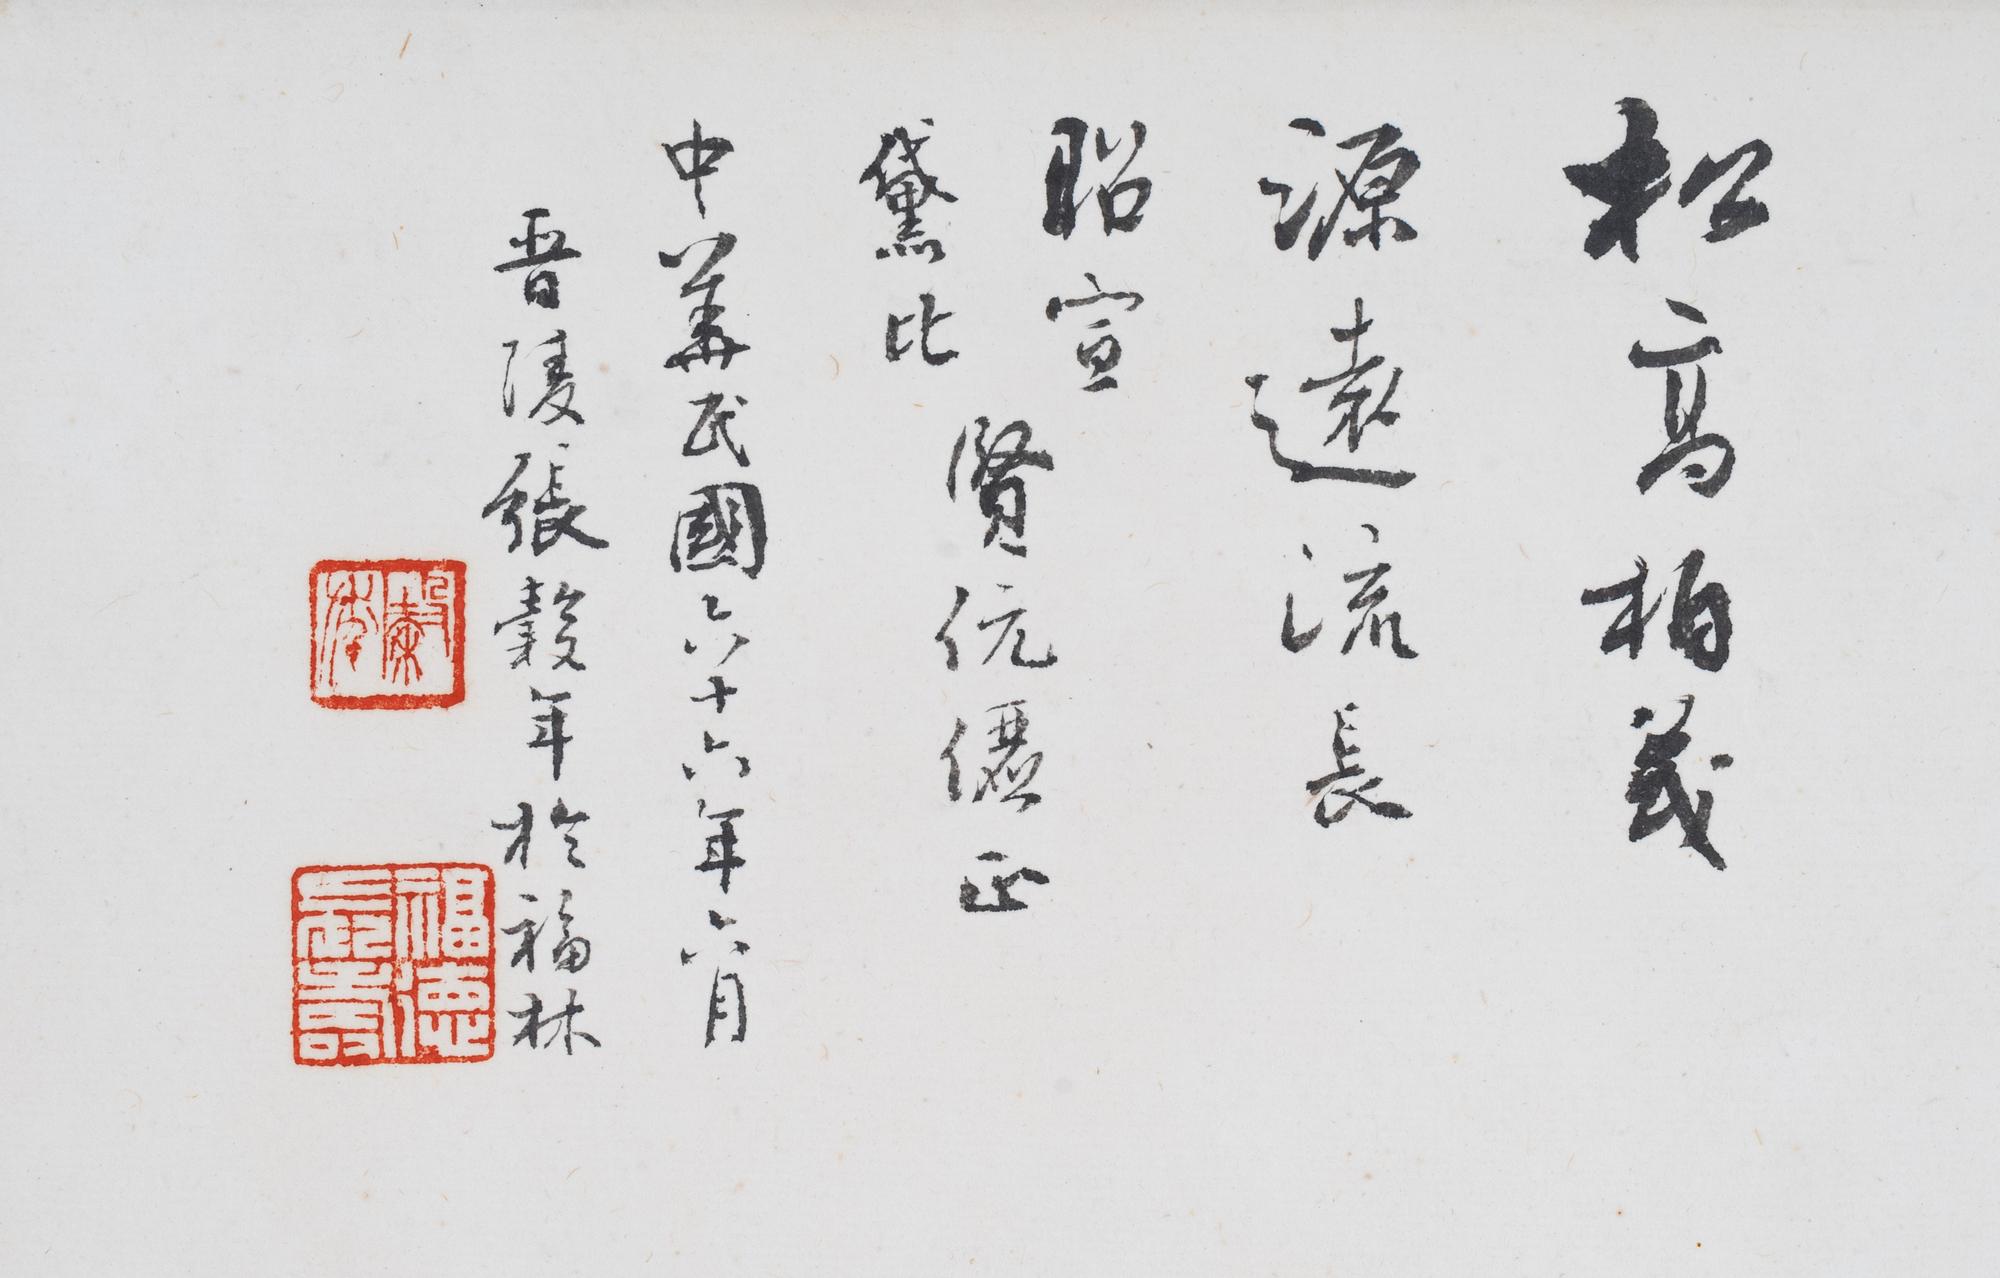 松高柏茂
源遠流長
昭宣
黛比
賢伉儷正
中華民國六十六年六月
晋陵張穀年於福林
穀年
福德長壽